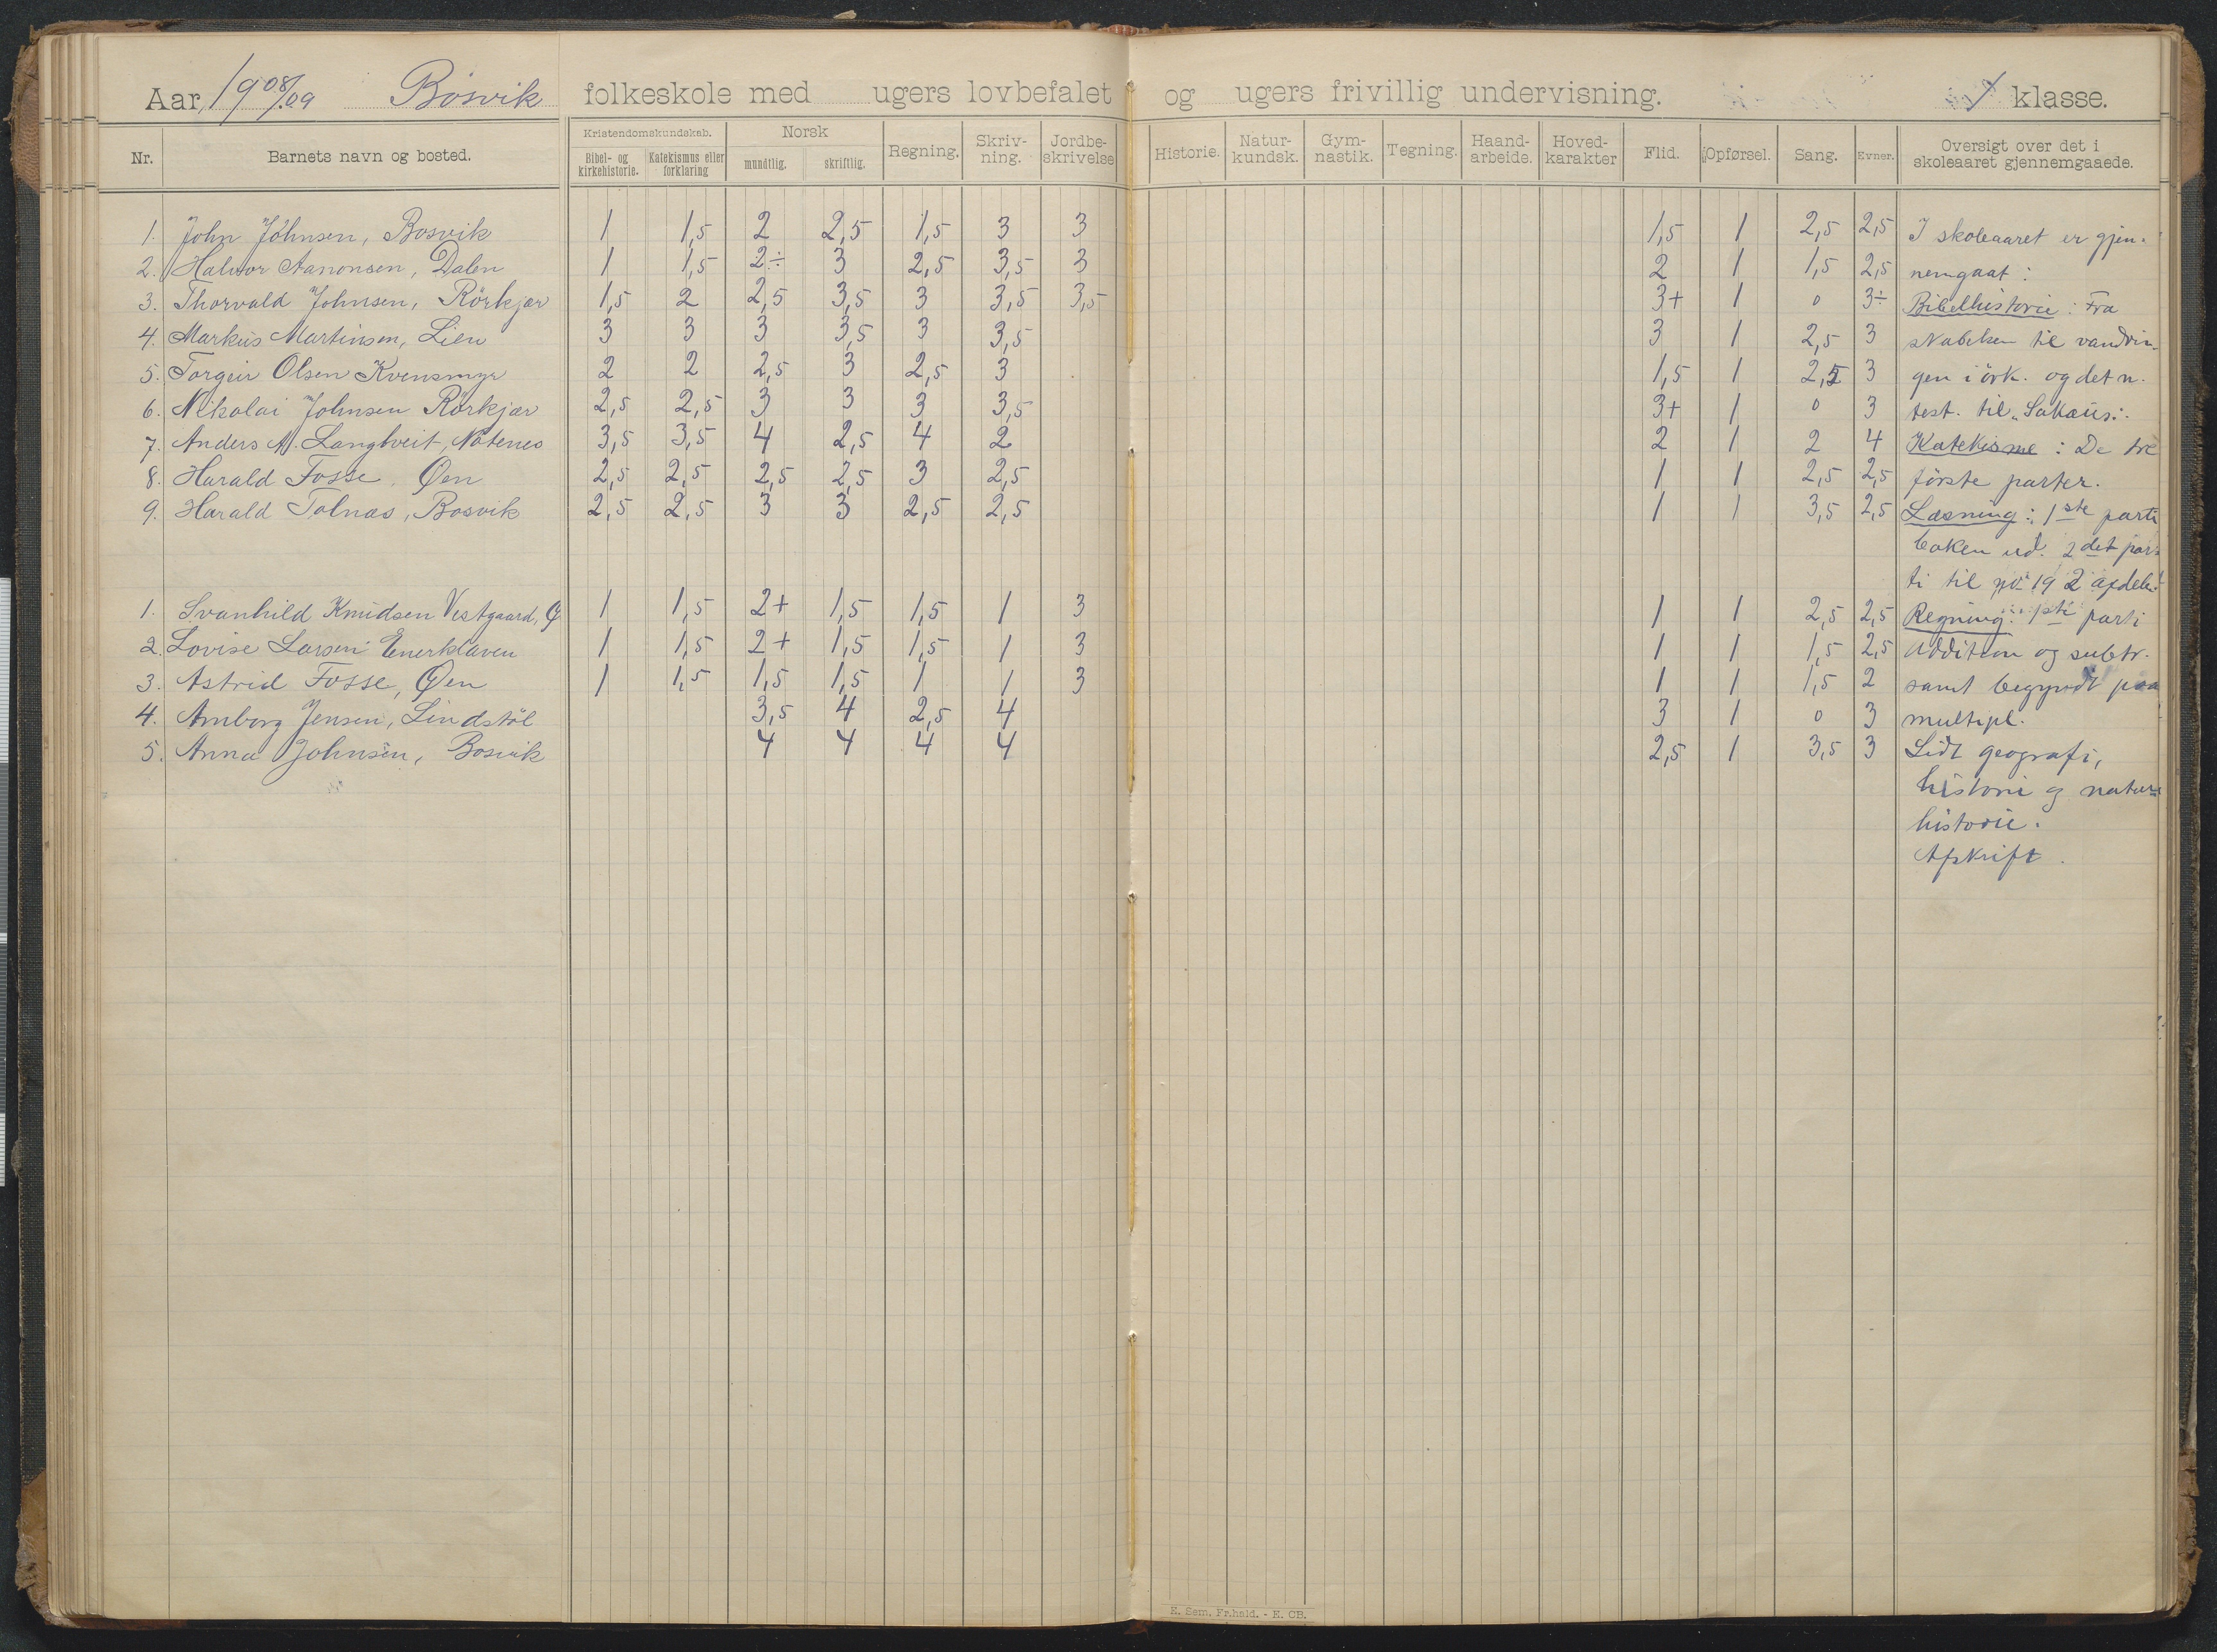 Aar 1908/09 Bosvik folkeskole med ugers lovbefalet og ugers frivillig undervisning. 1 klasse.
Nr. Barnets navn og bosted. Kristendomskundskab. Bibel- og kirkehistorie. Katekismus eller forklaring Norsk mundtlig. skriftlig. Regning. Skriv-ning. Jordbe-skrivelse Historie. Natur-kundsk. Gym-nastik. Tegning. Haand-arbeide. Hoved-karakter Flid. Opførsel. Sang. Evner. Oversigt over det i skoleaaret gjennemgaaede.
1. John Johnsen, Bosvik 1 1,5 2 2,5 1,5 3 3 1,5 1 2,5 2,5 I skoleaaret er gjen-
2. Halvor Aanonsen, Dalen 1 1,5 2÷ 3 2,5 3,5 3 2 1 1,5 2,5 nemgaat:
3. Thorvald Johnsen, Rörkjær 1,5 2 2,5 3,5 3 3,5 3,5 3+ 1 0 3÷ Bibelhistorie: Fra
4. Markus Martinsen, Lien 3 3 3 3,5 3 3,5 3 1 2,5 3 skabelsen til vandrin-
5. Torgeir Olsen Kvensmyr 2 2 2,5 3 2,5 3 1,5 1 2,5 3 gen i örk. og det n.
6. Nikolai Johnsen Rörkjær 2,5 2,5 3 3 3 3,5 3+ 1 0 3 test. til "Sakæus".
7. Anders A. Langtveit, Nätenes 3,5 3,5 4 2,5 4 2 2 1 2 4 Katekisme: De tre
8. Harald Fosse, Øen 2,5 2,5 2,5 2,5 3 2,5 1 1 2,5 2,5 förste parter.
9. Harald Tolnæs, Bosvik 2,5 2,5 3 3 2,5 2,5 1 1 3,5 2,5 Læsning: 1ste parti
boken ud. 2det par-
ti til no 19 2 afdel.
1. Svanhild Knudsen Vestgaard, Ø 1 1,5 2+ 1,5 1,5 1 3 1 1 2,5 2,5 Regning: 1ste parti
2. Lovise Larsen Enerklaven 1 1,5 2+ 1,5 1,5 1 3 1 1 1,5 2,5 Addition og subtr.
3. Astrid Fosse, Øen 1 1,5 1,5 1,5 1 1 3 1 1 1,5 2 samt begyndt paa
4. Amborg Jensen, Lindstöl 3,5 4 2,5 4 3 1 0 3 multipl.
5. Anna Johnsen, Bosvik 4 4 4 4 2,5 1 3,5 3 Lidt geografi,
historie og natur-
historie.
Afskrift.
E. Sem. Fr.hald. - E. CB.